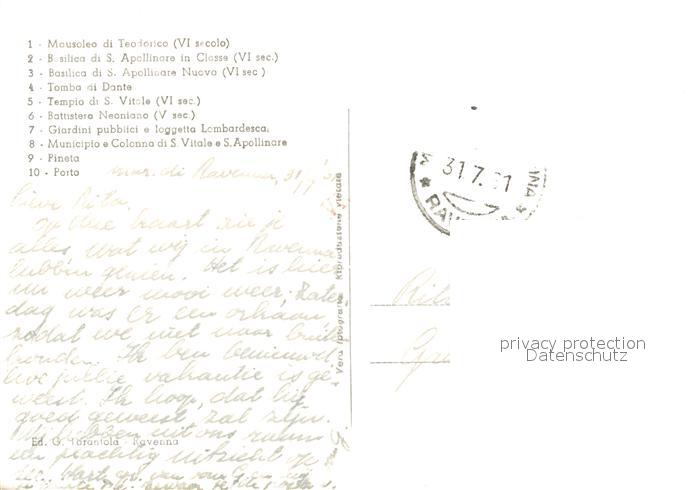 1 - Mausoleo di Teodorico (VI secolo)
2 - Basilica di S. Apollinare in Classe (VI sec.)
3 - Basilica di S. Apollinare Nuova (VI sec.)
4 - Tomba di Dante
5 - Tempio di S. Vitale (VI sec.)
6 - Battistera Neoniano (V sec.)
7 - Giardini pubblici e loggetta Lombardesca,
8 - Municipio e Colonna di S. Vitale e S. Apollinare
9 - Pineta
10 - Porto
Mar. di Ravenna, 31/7
Lieve Rita,
Op deze kaart zie je
alles, wat wij in Ravenna
hebben gezien. Het is hier
nu weer mooi weer; Zater
dag was er een orkaan
zodat we niet naar buiten
konden. Ik ben benieuwd
hoe jullie vakantie is ge
weest. Ik hoop, dat hij
goed geweest zal zijn.
Wij hebben uit ons raam
een prachtig uitzicht op
Ed. G. Tarantola - Ravenna
Vera fotografia - Riproduzione vietata
31.7.61
RAV
NNA
Rit
privacy protection
Datenschutz